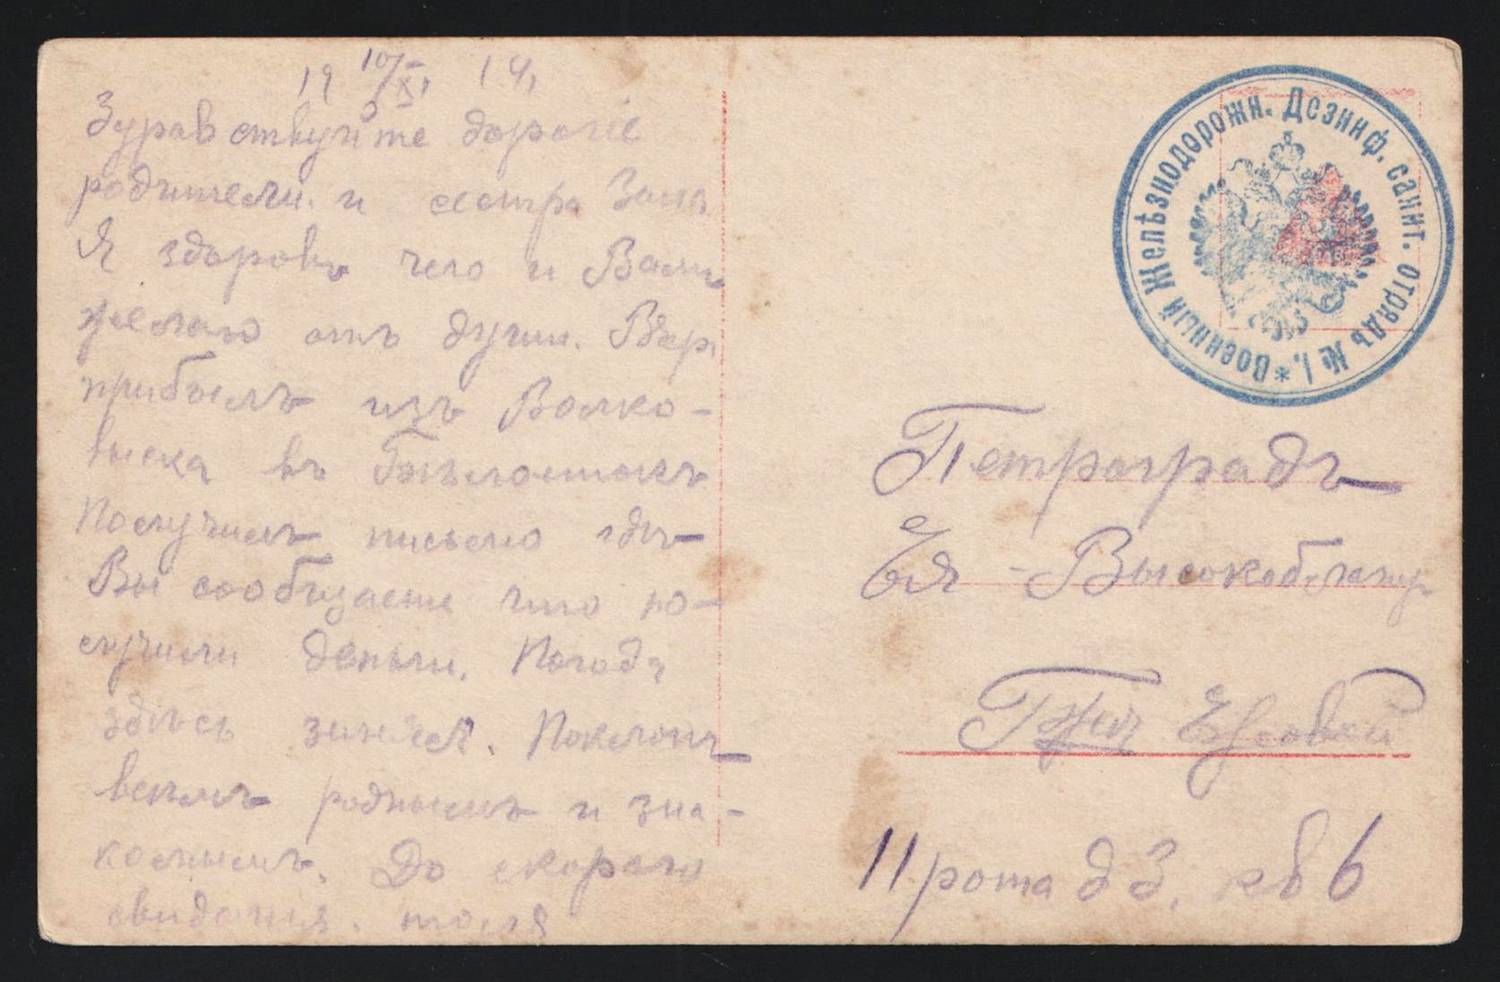 19 10/XI 14
Здравствуйте дорогіе
родители и сестра Зоя
Я здоровъ чего и Вамъ
желаю отъ души. Вчер
прибылъ изъ Волко-
выска въ Бѣлостокъ
Получилъ письмо гдѣ
Вы сообщаете что по-
лучили деньги. Погода
здѣсь зимняя. Поклонъ
всѣмъ роднымъ и зна-
комымъ. До скораго
свиданія.
Военный Желѣзнодорожн. Дезинф. санит. отрядъ № 1. *
Петроградъ
Ея-Высокоблагор
Гжи
11 рота д 3. кв 6